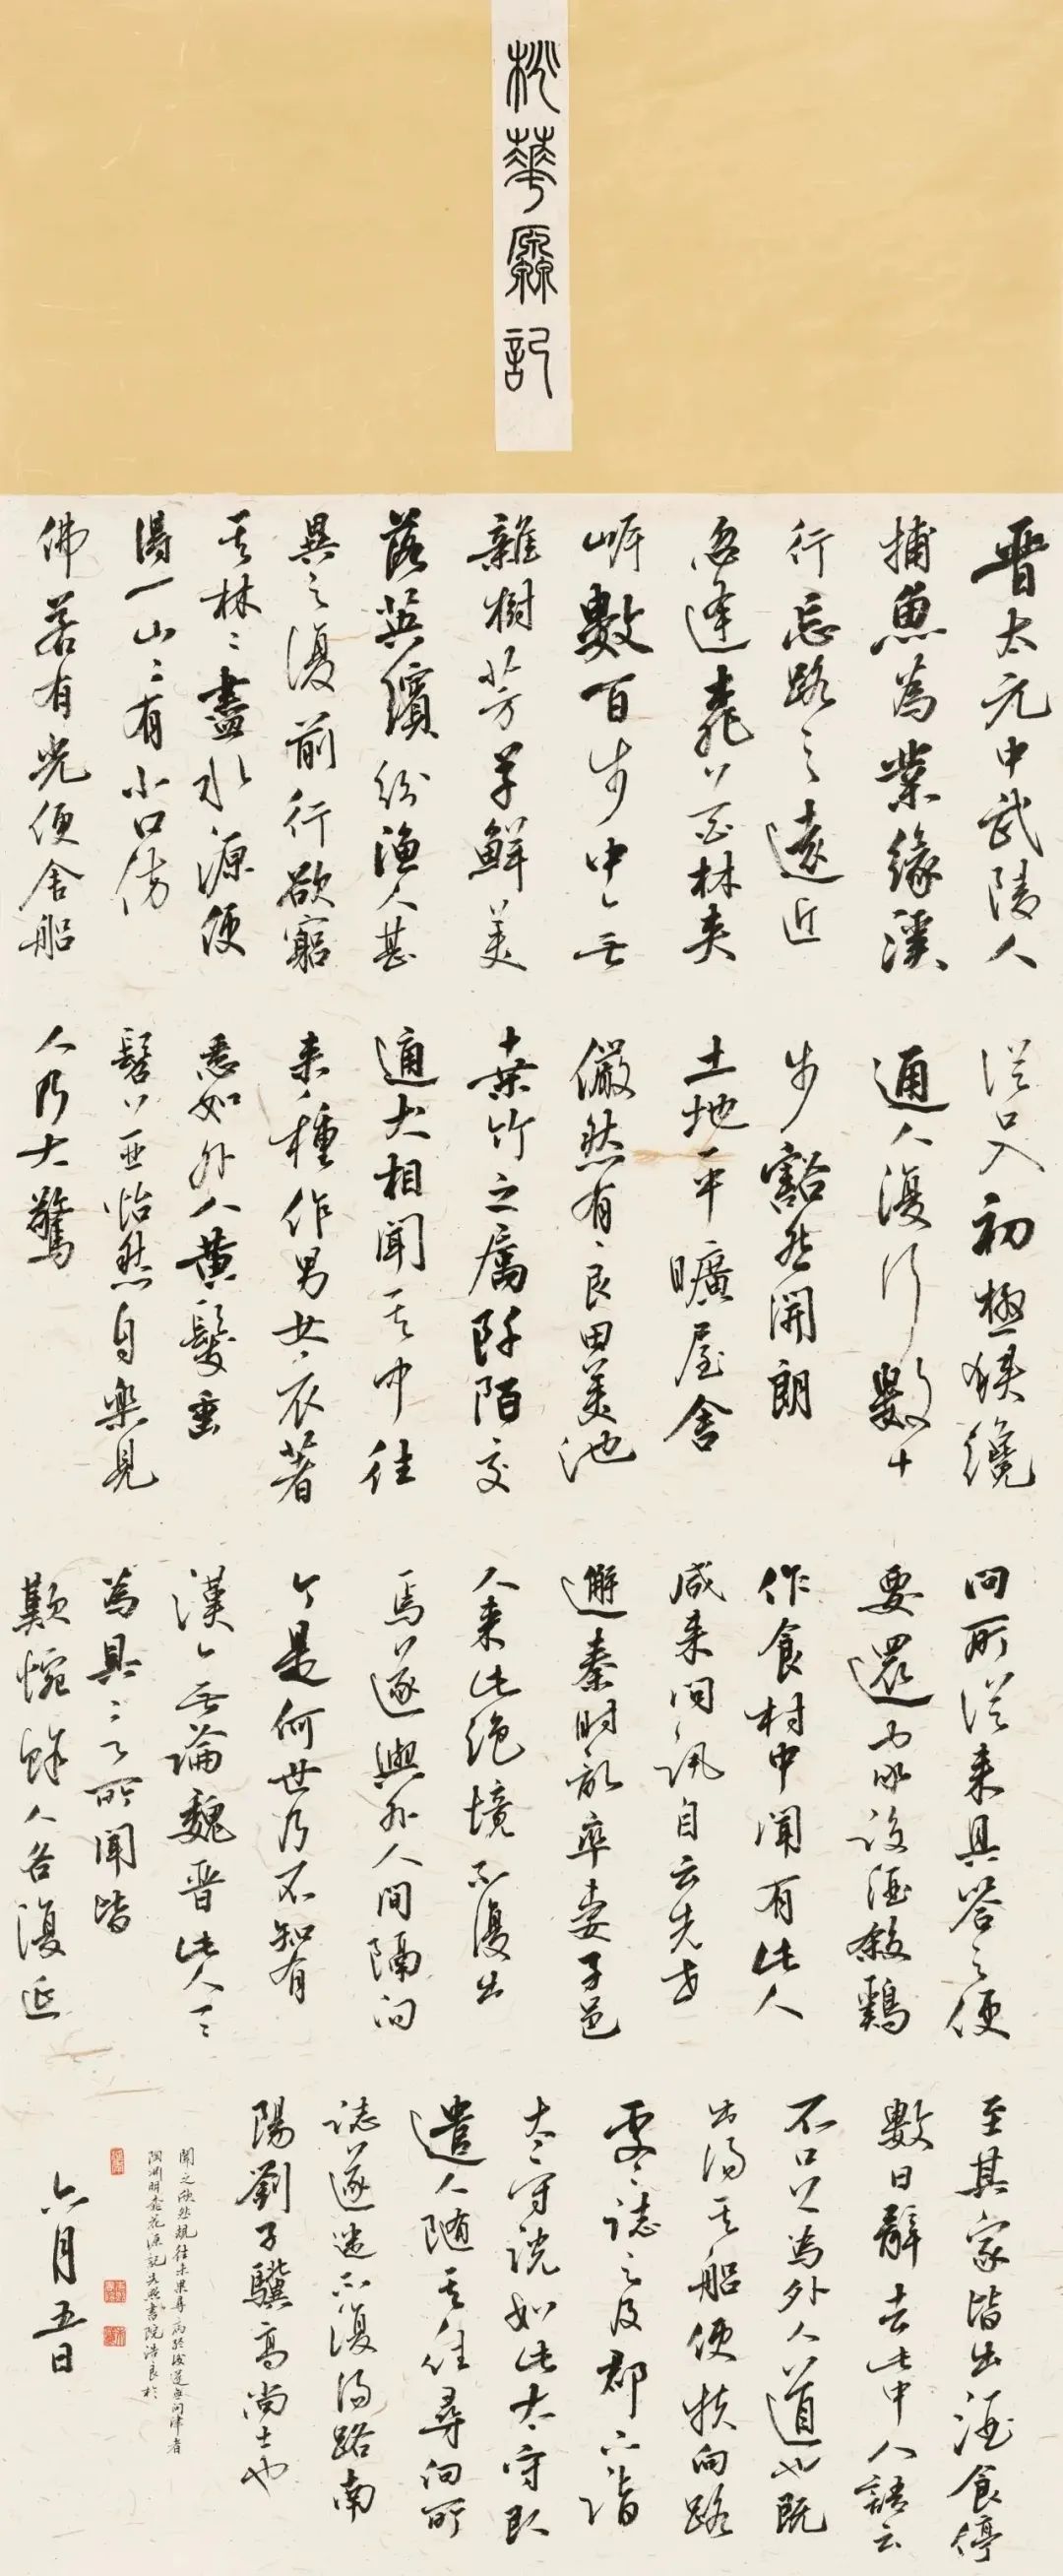 桃華源記
晉太元中武陵人
捕魚為業緣溪
行忘路之遠近
忽逢桃花林夹
岸數百步中無
雜樹芳草鮮美
落英繽紛漁人甚
異之復前行欲窮
其林林盡水源便
得一山山有小口仿
佛若有光便舍船
從口入初極狹纔
通人復行數十
步豁然開朗
土地平曠屋舍
儼然有良田美池
桑竹之屬阡陌交
通犬相聞其中往
来種作男女衣著
悉如外人黄髮垂
髫並怡然自樂見
人乃大驚
問所從来具答之便
要還家設酒殺鷄
作食村中聞有此人
咸来問訊自云先世
避秦時亂率妻子邑
人来此绝境不復出
焉遂與外人間隔问
今是何世乃不知有
漢無論魏晋此人一一
為具言所聞皆
歎惋餘人各復延
至其家皆出酒食停
數日辭去此中人語云
不足為外人道也既
出得其船便扶向路
處處誌之及郡下詣
太守说如此太守即
遣人随其往尋向所
誌遂迷不復得路南
陽劉子驥高尚士也
聞之欣然規往未果尋病終後遂無問津者
陶淵明桃花源記 書院浩良於
六月五日